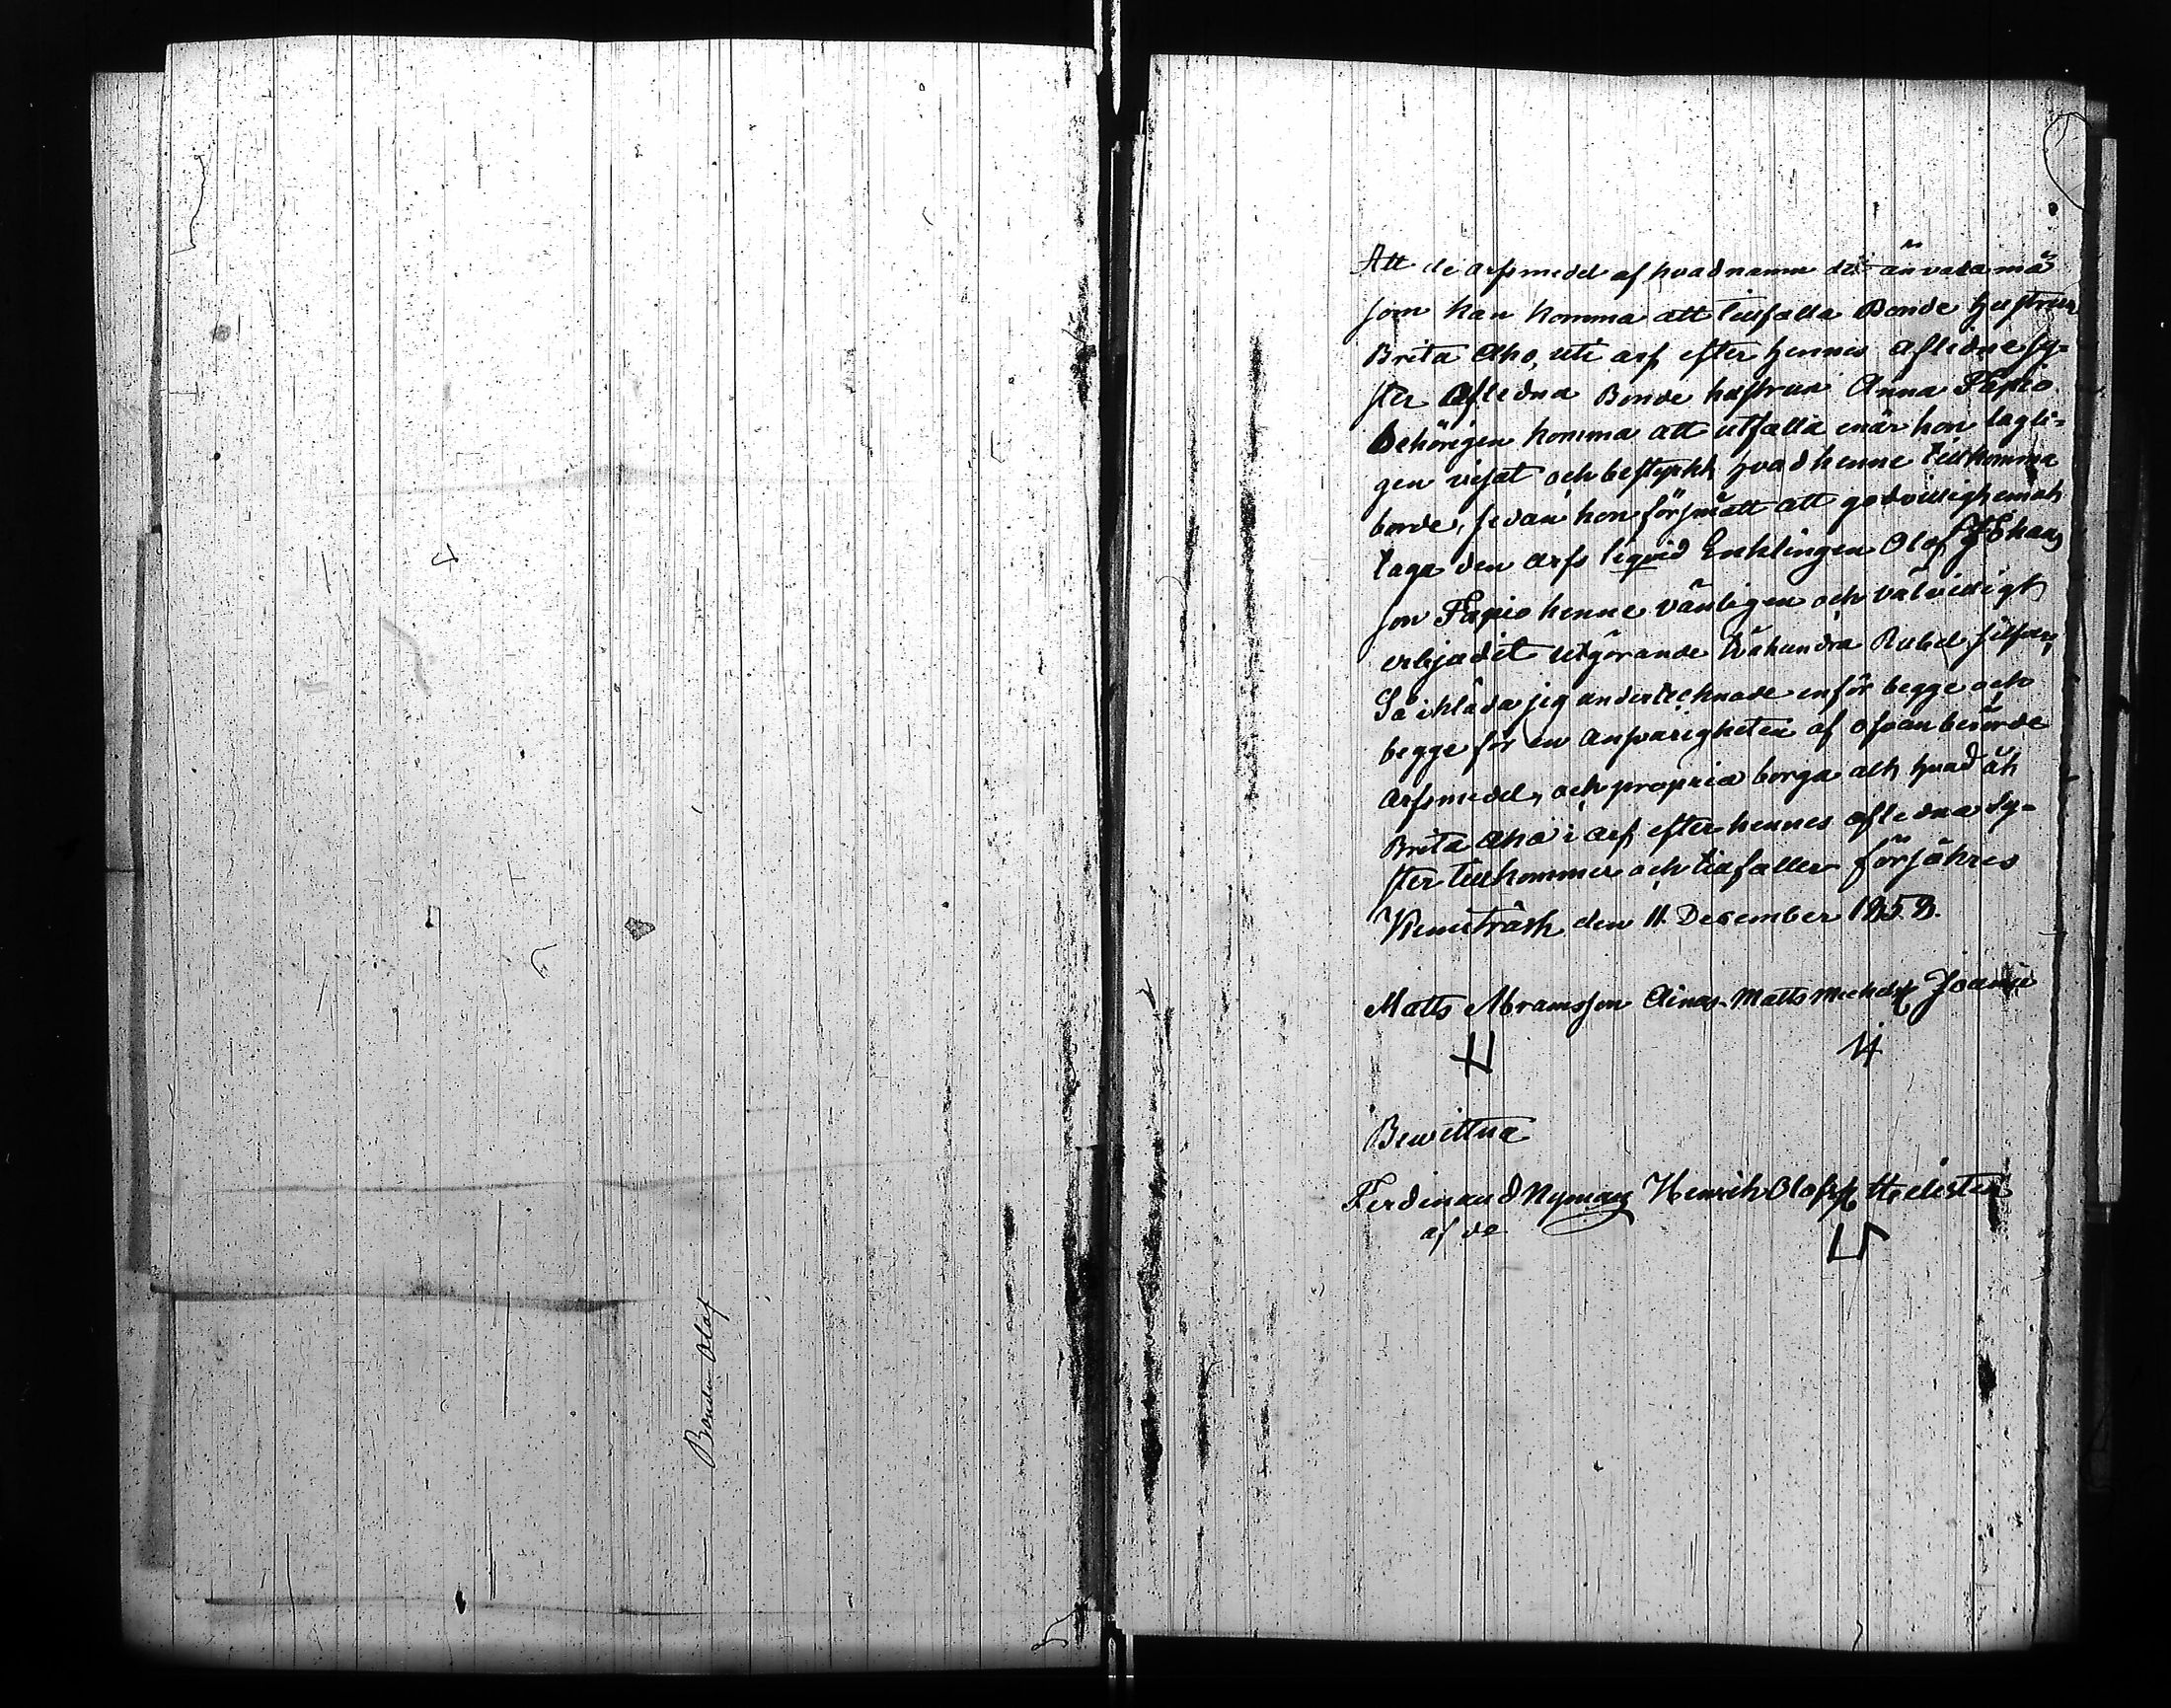 Bonden Olof
Att de arfsmedel af hvad namn de än vara må
som kan komma att tillfalla Bonde hustrun
Brita Aho, uti arf efter hennes aflidne sy-
ster Aflidna Bonde hustrun Anna Tapio
behörigen komma att utfalla enär hon lagli-
gen visat och bestyrkt hvad henne tillkomma
borde, sedan hon försmått att godvilligt emot
taga den arfs liqvid Enklingen Olof
son Tapio henne vänligen och välvilligt
erbjudit utgörande Tvåhundra Rubel silfver,
Så ikläda jeg undertecknade en för begge och
begge för en ansvarigheten af ofvanberörde
arfsmedel, och propria borga allt hvad åt
Brita Aho i arf efter hennes aflidna sy-
ster tillkommer och tillfaller försäkres
Kemiträsk den 11 December 1858.
Matts Abramsson Matts Joania
Bewittna
Ferdinand Nyman Henrik Olofss
af de